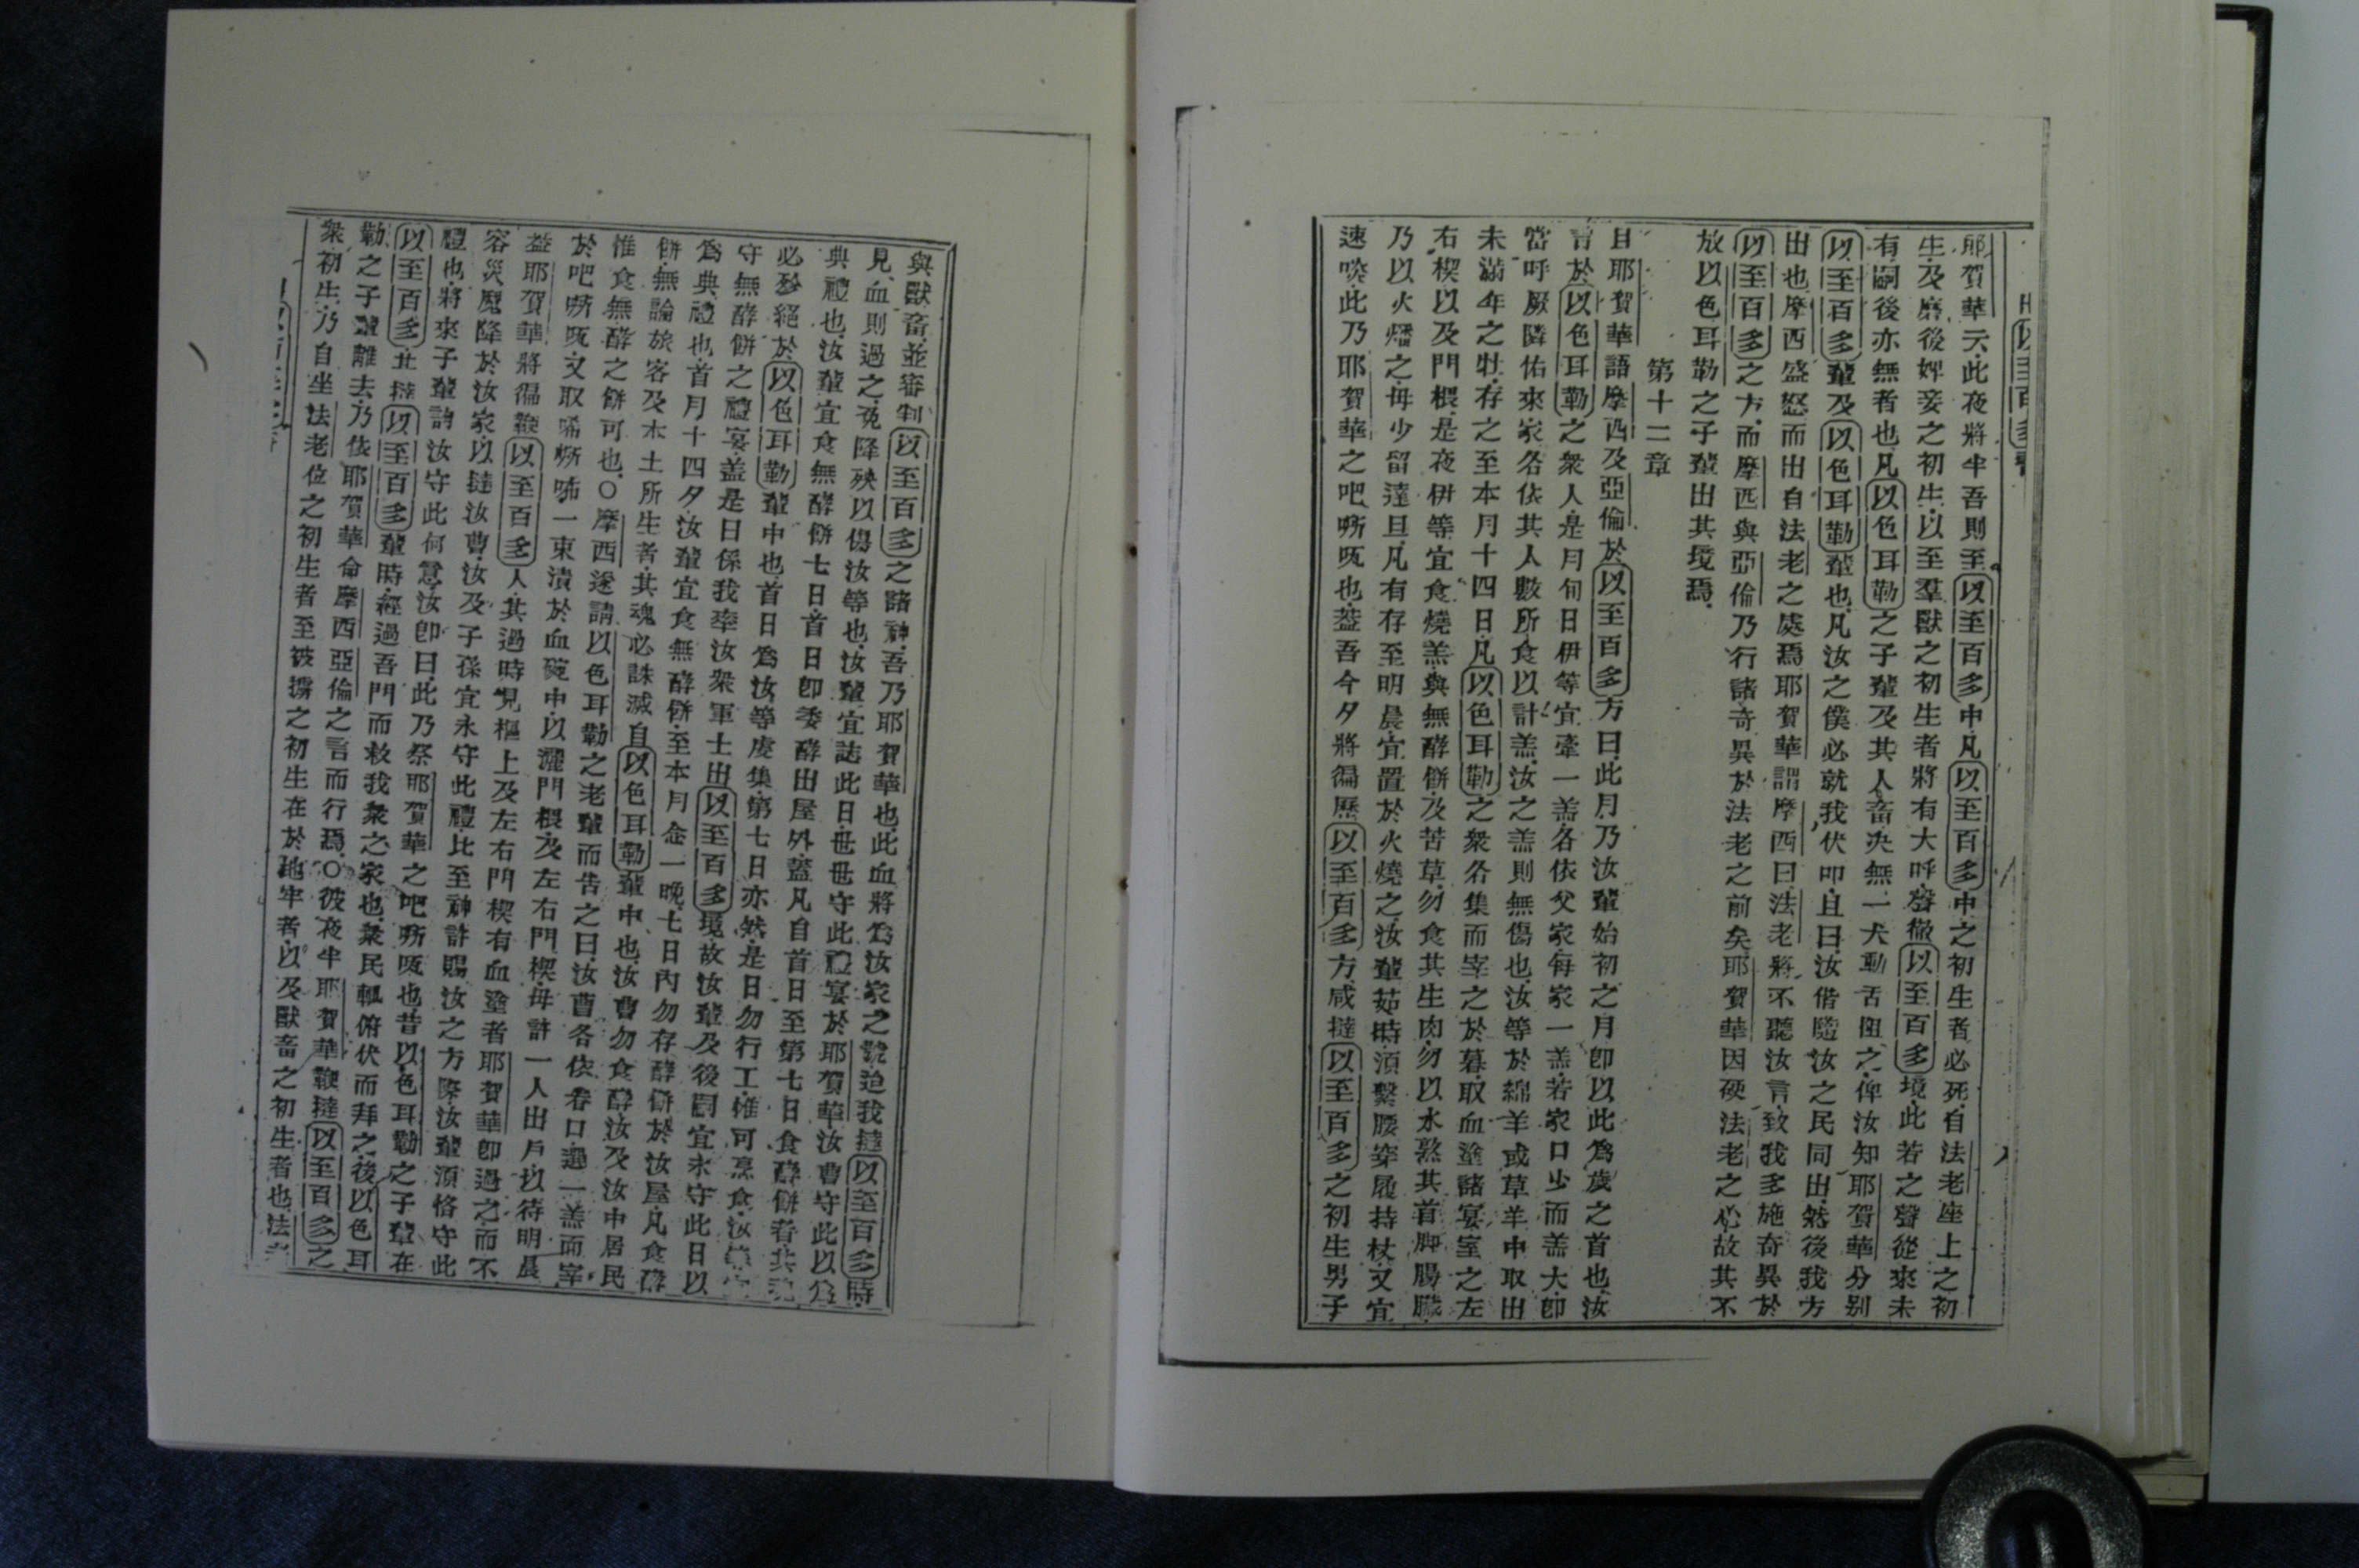 出以至百多書
耶賀華云此夜將半吾則至以至百多中凡以至百多中之初生者必死自法老座上之初
生及磨後婢妾之初生以至羣獸之初生者將有大呼聲徹以至百多境此若之聲從來未
有嗣後亦無者也凡以色耳勒之子輩及其人畜決無一犬動舌阻之俾汝知耶賀華分别
以至百多輩及以色耳勒輩也凡汝之僕必就我伏叩且曰汝偕隨汝之民同出然後我方
出也摩西盛怒而出自法老之處焉耶賀華謂摩西曰法老將不聽汝言致我多施奇異於
以至百多之方而摩西與亞倫乃行諸奇異於法老之前矣耶賀華因硬法老之心故其不
放以色耳勒之子輩出其境焉
第十二章
且耶賀華語摩西及亞倫於以至百多方曰此月乃汝輩始初之月卽以此爲歲之首也汝
言於以色耳勒之衆人是月旬日伊等宜牽一羔各依父家每家一羔若家口少而羔大卽
當呼厥隣佑來家各依其人數所食以計羔汝之羔則無傷也汝等於綿羊或草羊中取出
未滿年之牡存之至本月十四日凡以色耳勒之衆各集而宰之於暮取血塗諸宴室之左
右楔以及門楣是夜伊等宜食燒羔與無酵餅及苦草勿食其生肉勿以水熟其首脚腸臟
乃以火燔之毋少留達旦凡有存至明晨宜置於火燒之汝輩茹時須繫腰穿履持杖又宜
速喫此乃耶賀華之吧㗭旣也葢吾今夕將徧歷以至百多方咸撻以至百多之初生男子
與獸畜並審制以至百多之諸神吾乃耶賀華也此血將爲汝家之號迨我撻以至百多時
見血則過之免降殃以傷汝等也汝輩宜誌此日世世守此禮宴於耶賀華汝曹守此以爲
典禮也汝輩宜食無酵餅七日首日卽委酵出屋外蓋凡自首日至第七日食酵餅者其
必殄絕於以色耳勒輩中也首日爲汝等虔集第七日亦然是日勿行工惟可烹食汝
守無酵餅之禮宴盖是日係我率汝衆軍士出以至百多境故汝輩及後嗣宜永守此日以
爲典禮也首月十四夕汝輩宜食無酵餅至本月念一晚七日內勿存酵餅於汝屋凡食酵
餅無論旅客及本土所生者其魂必誅滅自以色耳勒輩中也汝曹勿食酵汝及汝中居民
惟食無酵之餅可也○摩西遂請以色耳勒之老輩而告之曰汝曹各依眷口選一羔而宰
於吧㗭旣又取唏㗭啼一束漬於血碗中以灑門楣及左右門楔毋許一人出戶以待明晨
葢耶賀華將徧鞭以至百多人其過時見樞上及左右門楔有血塗者耶賀華卽過之而不
容災魔降於汝家以撻汝曹汝及子孫宜永守此禮比至神許賜汝之方際汝輩須恪守此
禮也將來子輩詢汝守此何意汝卽曰此乃祭耶賀華之吧㗭旣也昔以色耳勒之子輩在
以至百多並撻以至百多輩時經過吾門而救我衆之家也衆民輒俯伏而拜之後以色耳
勒之子輩離去乃依耶賀華命摩西亞倫之言而行焉○彼夜半耶賀華鞭撻以至百多之
衆初生乃自坐法老位之初生者至被擄之初生在於地牢者以及獸畜之初生者也法老